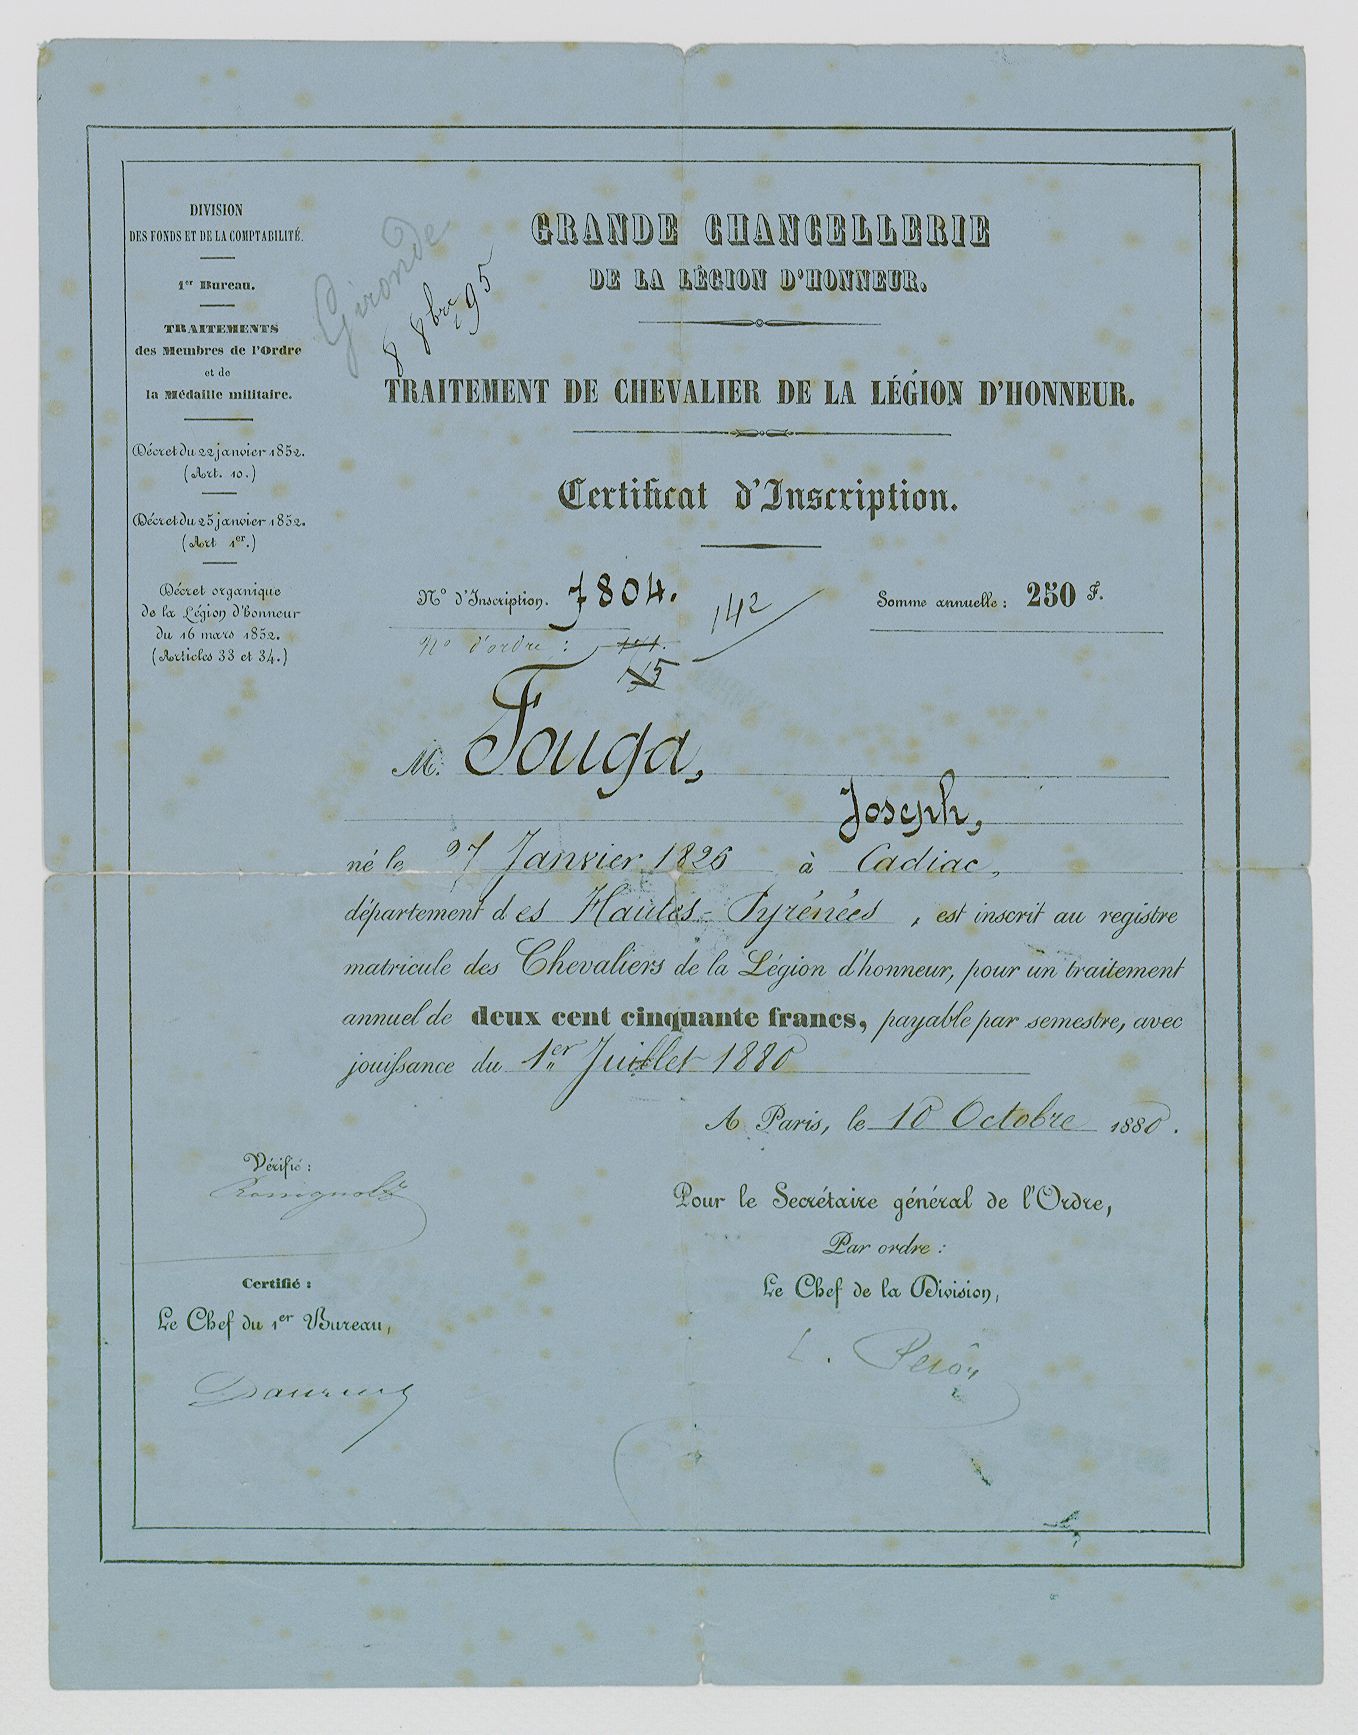 DIVISION
DES FONDS ET DE LA COMPTABILITÉ.
1er Bureau.
TRAITEMENTS
des Membres de l'Ordre
et de
la Médaille militaire.
Décret du 22 janvier 1852.
(Art. 10.)
Décret du 25 janvier 1852.
(Art 1er.)
Décret organique
de la Légion d'honneur
du 16 mars 1852.
(Articles 33 et 34.)
Gironde
8 8bre 95
GRANDE CHANCELLERIE
DE LA LÉGION D'HONNEUR.
TRAITEMENT DE CHEVALIER DE LA LÉGION D'HONNEUR.
Certificat d'Inscription.
No d'Inscription. 7804.
Somme annuelle : 250 F.
No d'ordre :
142
M. Fouga,
Joseph,
né le 27 Janvier 1826 à Cadiac,
département des Hautes-Pyrénées, est inscrit au registre
matricule des Chevaliers de la Légion d'honneur, pour un traitement
annuel de deux cent cinquante francs, payable par semestre, avec
jouissance du 1er Juillet 1880
A Paris, le 10 Octobre 1880.
Vérifié :
Pour le Secrétaire général de l'Ordre,
Par ordre :
Le Chef de la Division,
Certifié :
Le Chef du 1er Bureau,